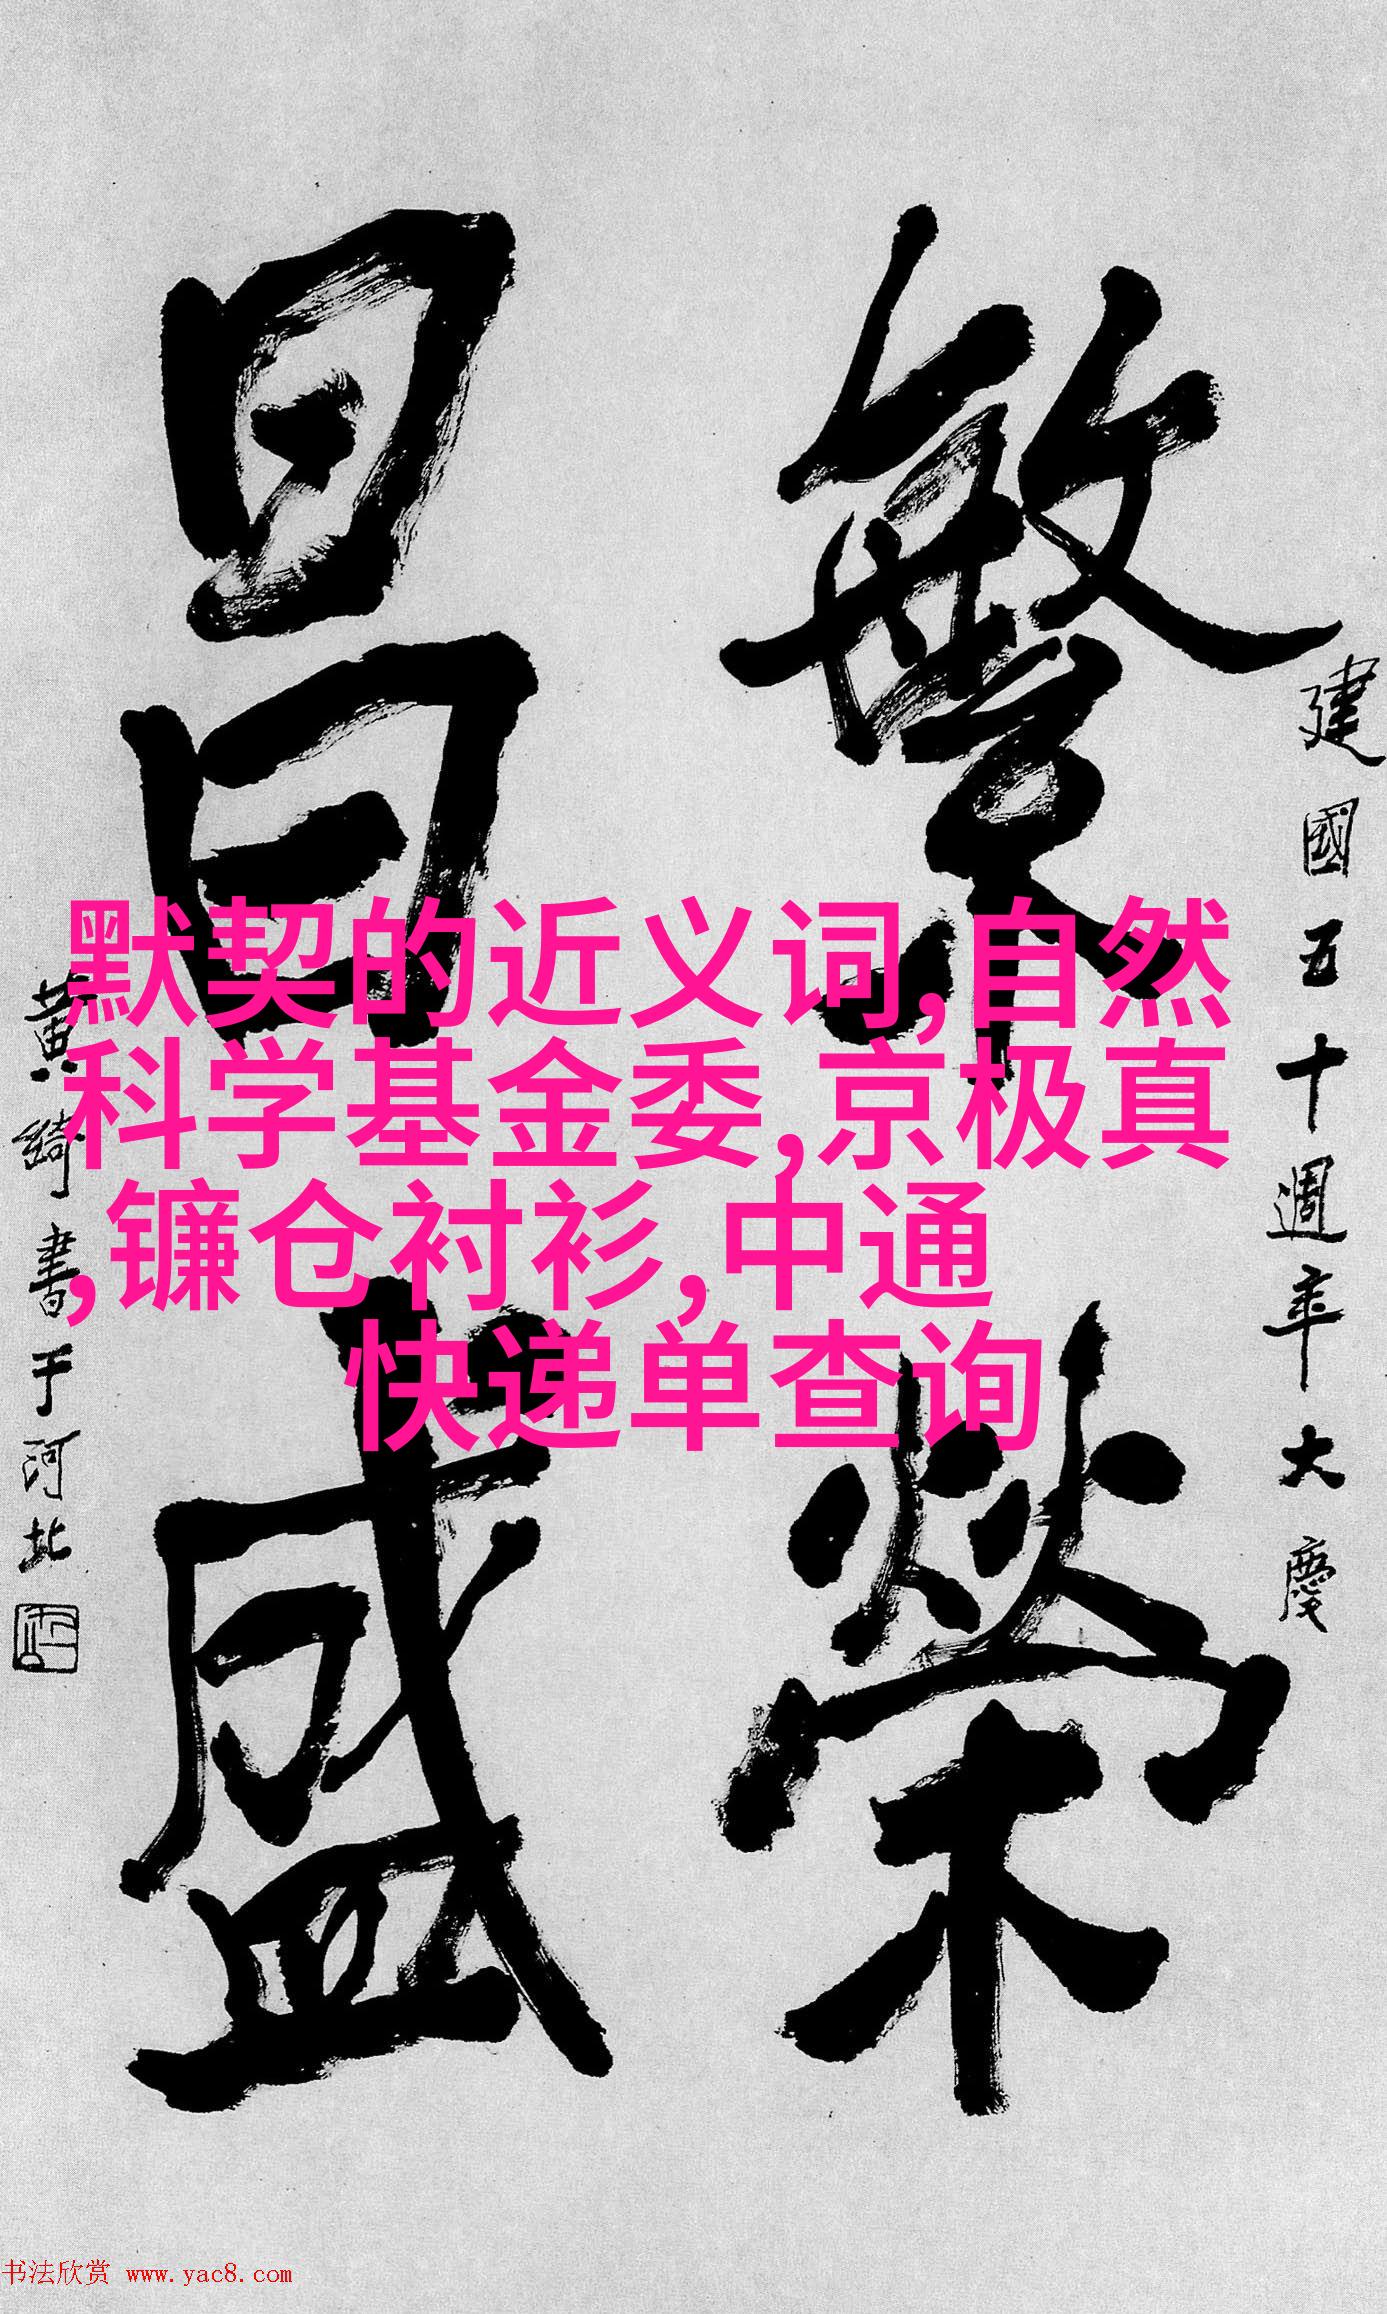 建國五十週年大慶
繁榮
昌盛
黄綺書于河北
默契的近义词,自然
科学基金委,京极真
,镰仓衬衫,中通
快递单查询
书法欣赏 www.yac8.com